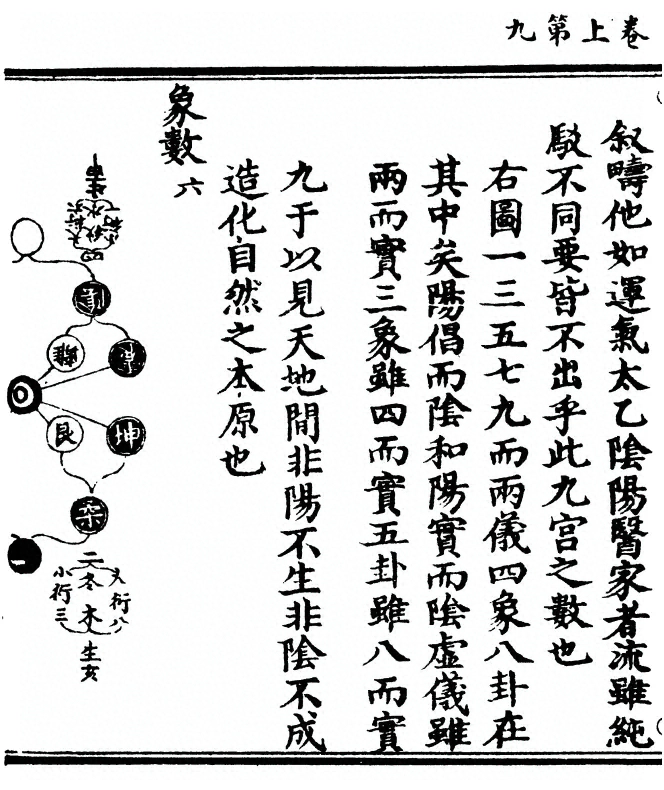 卷上第九
叙疇他如運氣太乙陰陽醫家者流雖純
駁不同要皆不出乎此九宮之數也
右圖一三五七九而兩儀四象八卦在
其中矣陽倡而陰和陽實而陰虛儀雖
兩而實三象雖四而實五卦雖八而實
九于以見天地間非陽不生非陰不成
造化自然之本原也
象數六
離
艮
坤
大衍八
木
生亥
小衍三